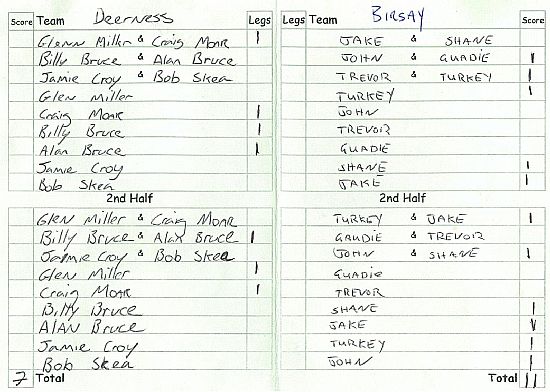 Score Team Deerness Legs Legs Team BIRSAY Score
Glenn Miller & Craig Moar | JAKE & SHANE
Billy Bruce & Alan Bruce JOHN & GUADIE |
Jamie Croy & Bob Skea TREVOR & TURKEY |
Glen Miller TURKEY |
Craig Moar | JOHN
Billy Bruce | TREVOR
Alan Bruce | GUADIE
Jamie Croy SHANE |
Bob Skea JAKE |
2nd Half 2nd Half
Glen Miller & Craig Moar TURKEY & JAKE |
Billy Bruce & Alan Bruce | GAUDIE & TREVOR
Jamie Croy & Bob Skea JOHN & SHANE |
Glen Miller | GUADIE
Craig Moar | TREVOR
Billy Bruce SHANE |
ALAN Bruce JAKE |
Jamie Croy TURKEY |
Bob Skea JOHN |
7 Total Total 11